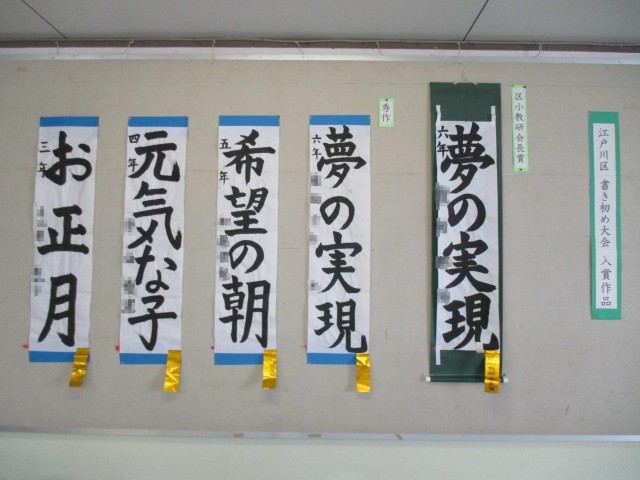 江戸川区 書き初め大会 入賞作品
区小教研会長賞
六年
夢の実現
秀作
六年
夢の実現
五年
希望の朝
四年
元気な子
三年
お正月